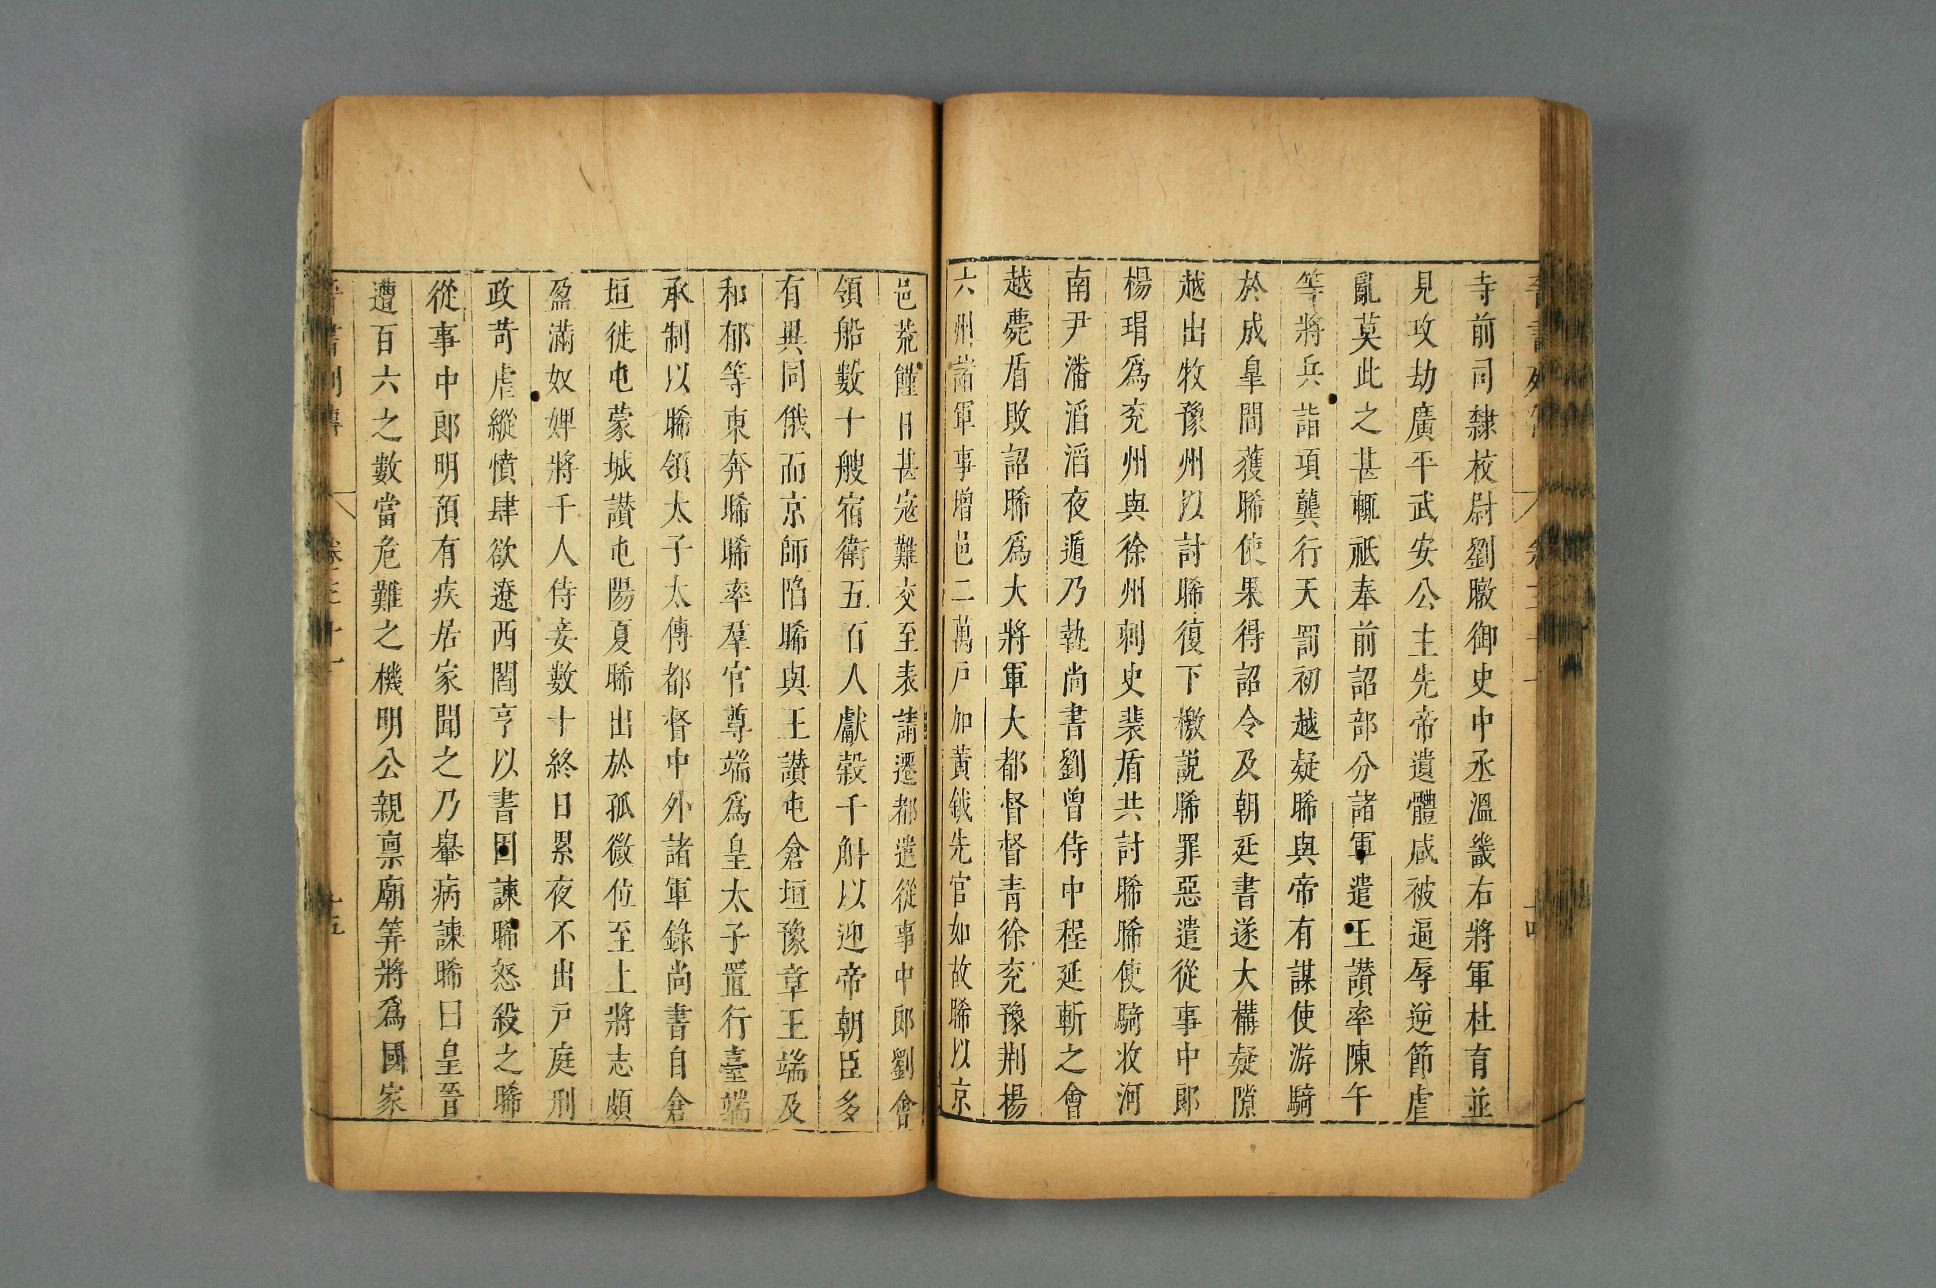 寺前司隸校尉劉暾御史中丞溫畿右將軍杜育並
見攻劫廣平武安公主先帝遺體咸被逼辱逆節虐
亂莫此之甚輒祗奉前詔部分諸軍遣王讃率陳午
等將兵詣項龔行天罰初越疑晞與帝有謀使游騎
於成臯間獲晞使果得詔令及朝廷書遂大構疑隙
越出牧豫州以討晞復下檄說晞罪惡遣從事中郎
楊瑁爲兖州與徐州刺史裴盾共討晞晞使騎收河
南尹潘滔滔夜遁乃執尚書劉曾侍中程延斬之會
越薨盾敗詔晞爲大將軍大都督督青徐兖豫荆楊
六州諸軍事增邑二萬戶加黃鉞先官如故晞以京
邑荒饉日甚宼難交至表請遷都遣從事中郎劉會
領船數十艘宿衛五百人獻榖千斛以迎帝朝臣多
有異同俄而京師陷晞與王讃屯倉垣豫章王端及
和郁等東奔晞晞率羣官尊端爲皇太子置行臺端
承制以晞領太子太傅都督中外諸軍錄尚書自倉
垣徙屯蒙城讃屯陽夏晞出於孤微位至上將志頗
盈滿奴婢將千人侍妾數十終日累夜不出戶庭刑
政苛虐縱憤肆欲遼西閻亨以書固諫晞怒殺之晞
從事中郎明預有疾居家聞之乃轝病諫晞曰皇晉
遭百六之數當危難之機明公親禀廟筭將爲國家
晉書列傳 卷三十一 十五